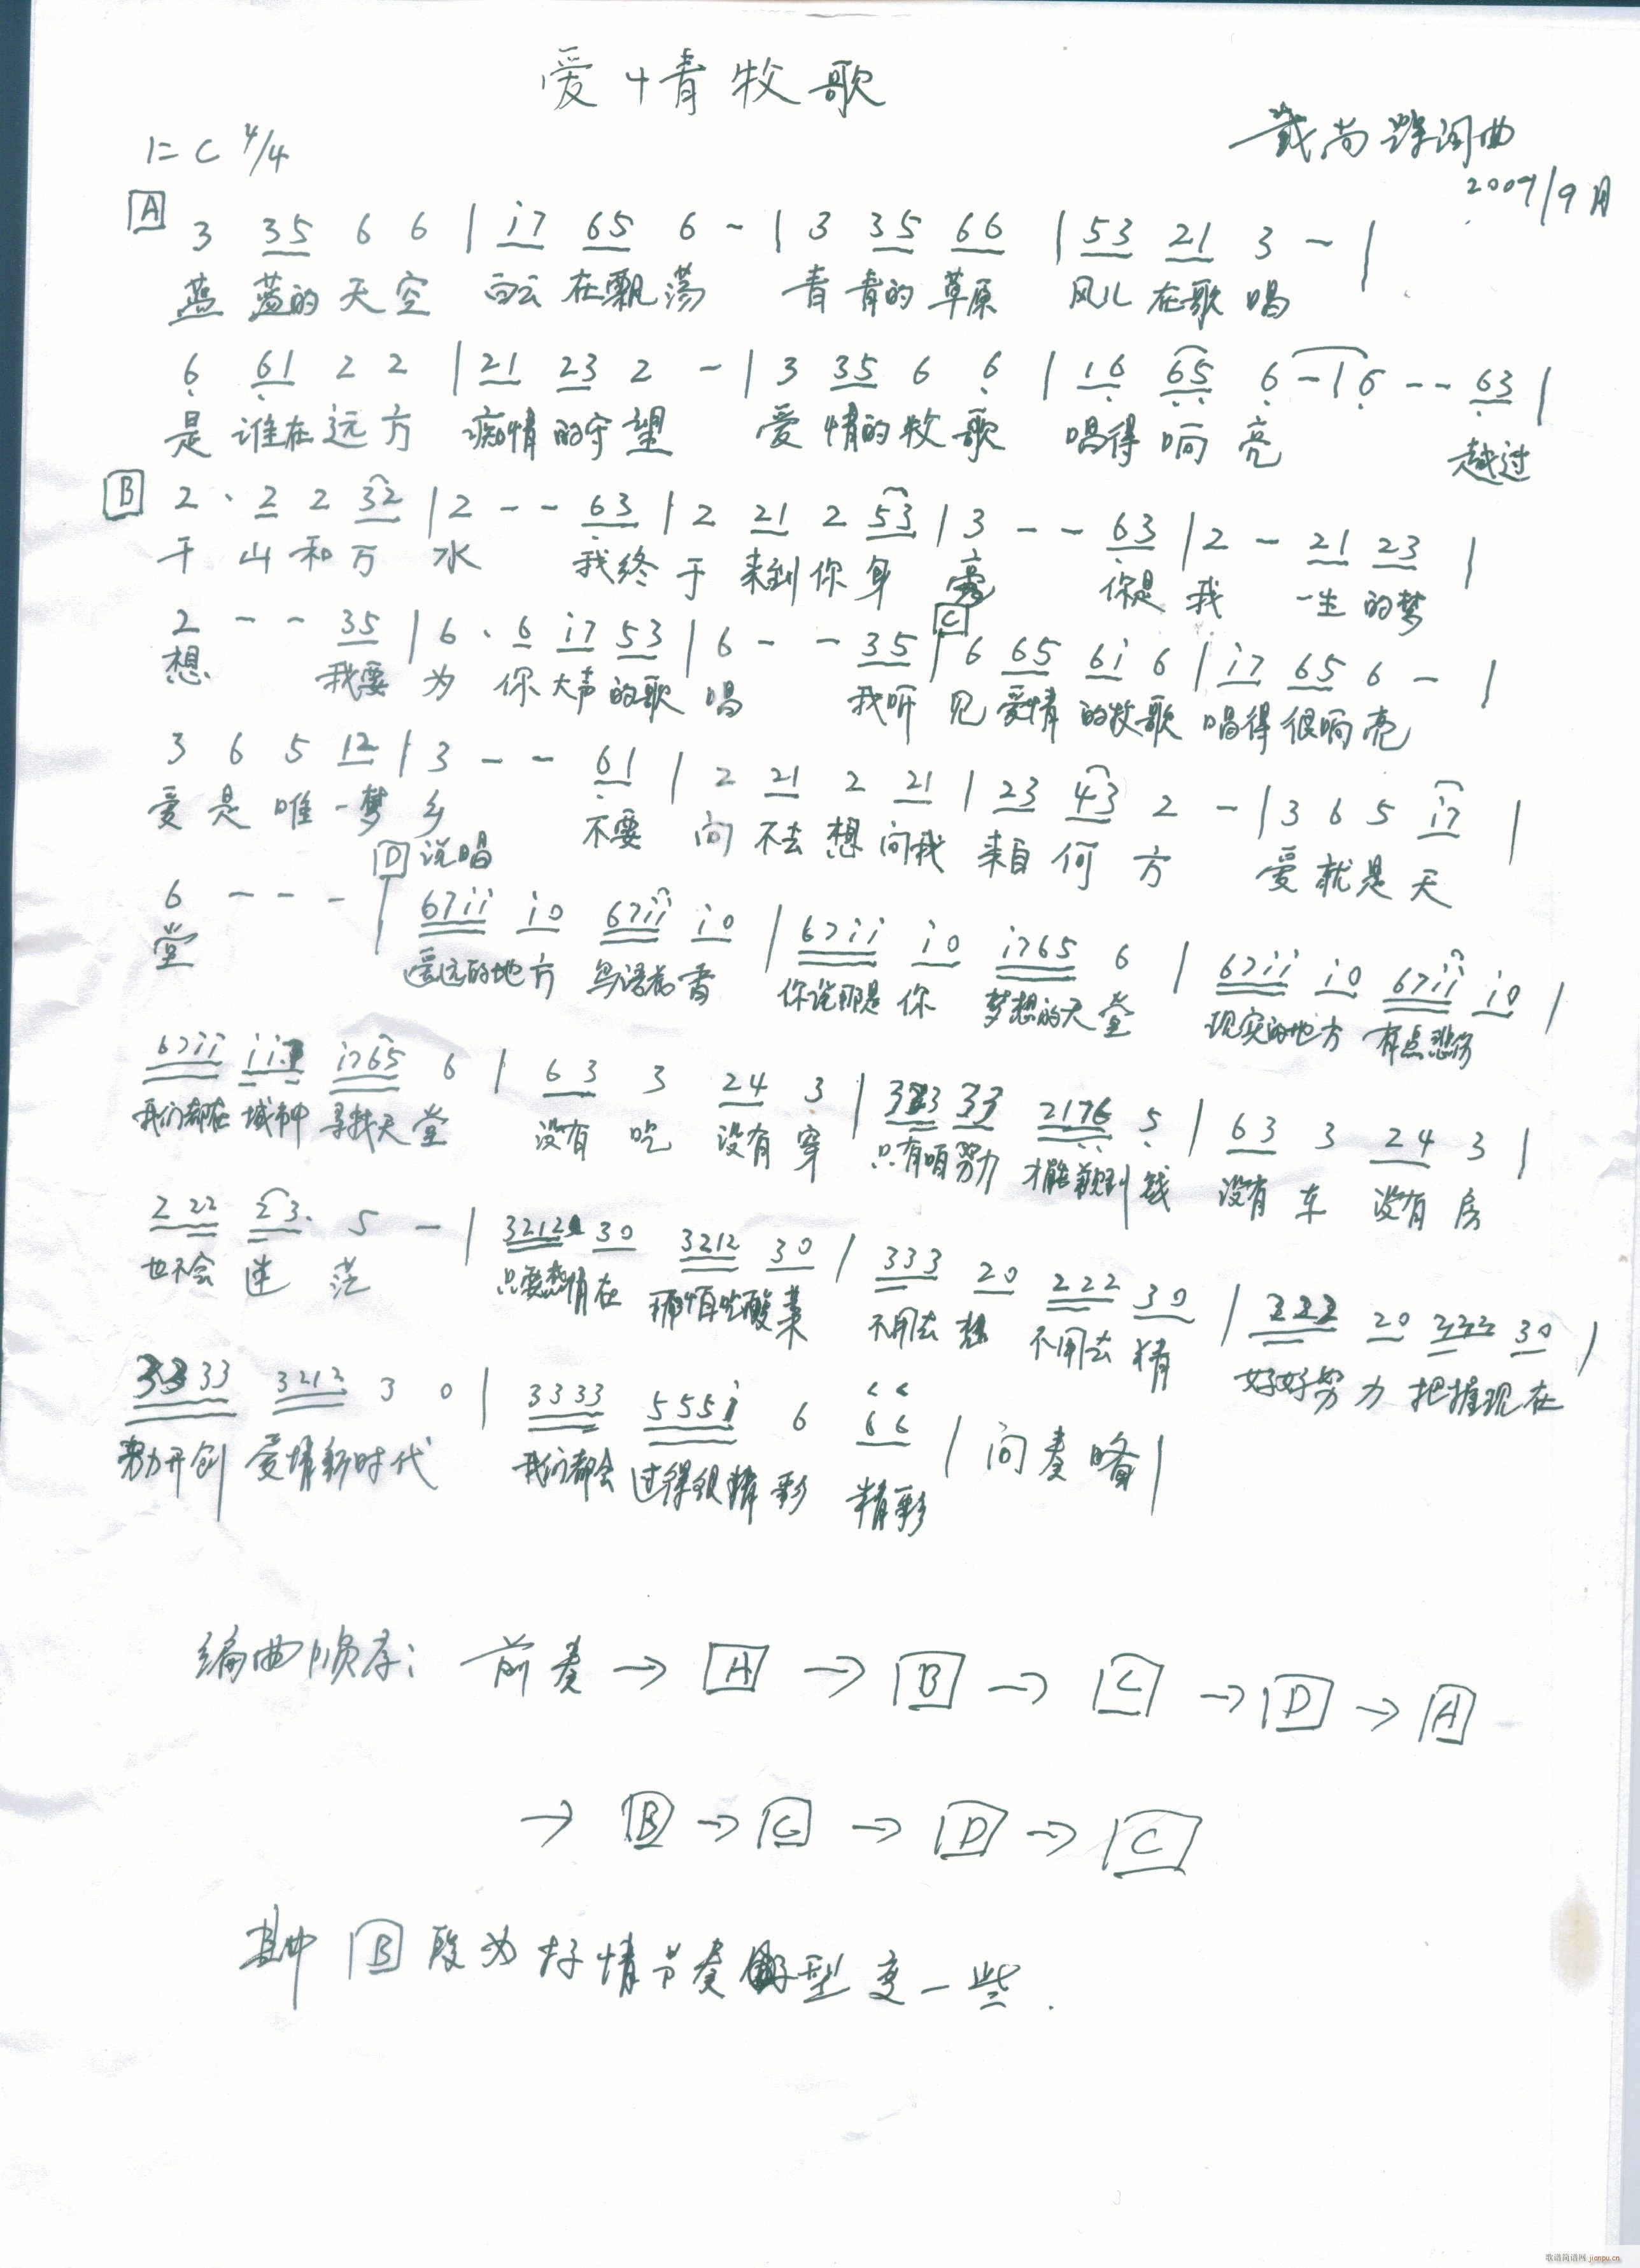 爱情牧歌
1=C 4/4
戴尚 词曲
2009/9月
A 3 35 6 6 | i7 65 6 - | 3 35 66 | 53 21 3 - |
蓝 蓝的 天 空 白云 在飘 荡 青 青的 草原 风儿 在歌 唱
6 61 2 2 | 21 23 2 - | 3 35 6 6 | 16 65 6 - | 6 - - 63 |
是 谁在 远 方 痴情 的守 望 爱 情的 牧 歌 唱得 响 亮 越过
B 2 · 2 2 32 | 2 - - 63 | 2 21 2 53 | 3 - - 63 | 2 - 21 23 |
千 山 和 万 水 我终 于 来到 你 身 旁 你是 我 一生 的梦
C
2 - - 35 | 6 · 6 i7 53 | 6 - - 35 | 6 65 6i 6 | i7 65 6 - |
想 我要 为 你 大声 的歌 唱 我听 见 爱情 的牧 歌 唱得 很响 亮
3 6 5 12 | 3 - - 61 | 2 21 2 21 | 23 43 2 - | 3 6 5 i7 |
爱 是 唯 一梦 乡 不要 问 不去 想 问我 来自 何 方 爱 就 是 天
D 说唱
6 - - - | 67ii i0 67ii i0 | 67ii i0 i765 6 | 67ii i0 67ii i0 |
堂 遥远的地 方 鸟语花 香 你说那是 你 梦想的天 堂 现实的地 方 有点悲伤
67ii ii i765 6 | 63 3 24 3 | 33 2176 5 | 63 3 24 3 |
我们都在 城市中 寻找天 堂 没有 吃 没有 穿 只有咱 努力 才能赚到 钱 没有 车 没有 房
2 22 23· 5 - | 3212 30 3212 30 | 333 20 222 30 | 333 20 222 30 |
也不会 迷 茫 只要 情 在 哪怕吃酸 菜 不用去 想 不用去 猜 好好努 力 把握现 在
3333 3212 3 0 | 3333 555i 6 66 | 间奏略 |
努力开创 爱情新时 代 我们都会 过得很精 彩 精彩
编曲顺序: 前奏 → A → B → C → D → A
→ B → C → D → C
其中 B 段为抒情节奏 型变一些.
歌谱简谱网 jianpu.cn